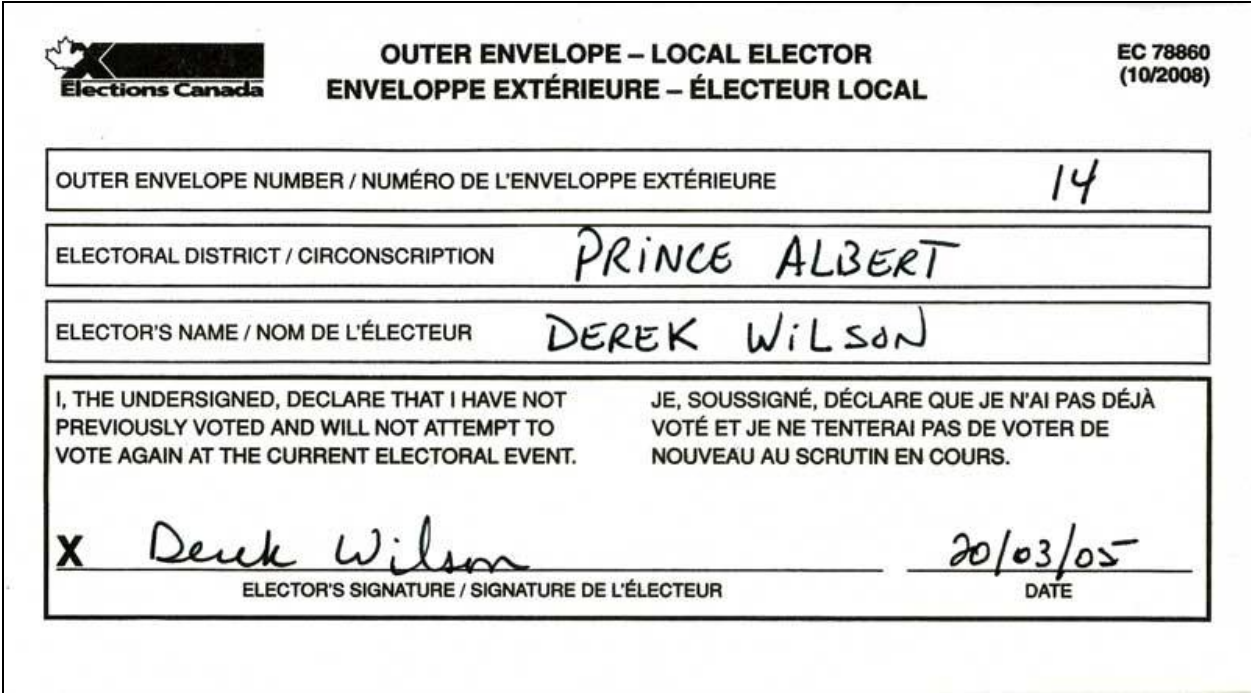 Elections Canada
OUTER ENVELOPE – LOCAL ELECTOR
ENVELOPPE EXTÉRIEURE – ÉLECTEUR LOCAL
EC 78860
(10/2008)
OUTER ENVELOPE NUMBER / NUMÉRO DE L'ENVELOPPE EXTÉRIEURE 14
ELECTORAL DISTRICT / CIRCONSCRIPTION PRINCE ALBERT
ELECTOR'S NAME / NOM DE L'ÉLECTEUR DEREK WILSON
I, THE UNDERSIGNED, DECLARE THAT I HAVE NOT
PREVIOUSLY VOTED AND WILL NOT ATTEMPT TO
VOTE AGAIN AT THE CURRENT ELECTORAL EVENT.
JE, SOUSSIGNÉ, DÉCLARE QUE JE N'AI PAS DÉJÀ
VOTÉ ET JE NE TENTERAI PAS DE VOTER DE
NOUVEAU AU SCRUTIN EN COURS.
X Derek Wilson
ELECTOR'S SIGNATURE / SIGNATURE DE L'ÉLECTEUR
20/03/05
DATE